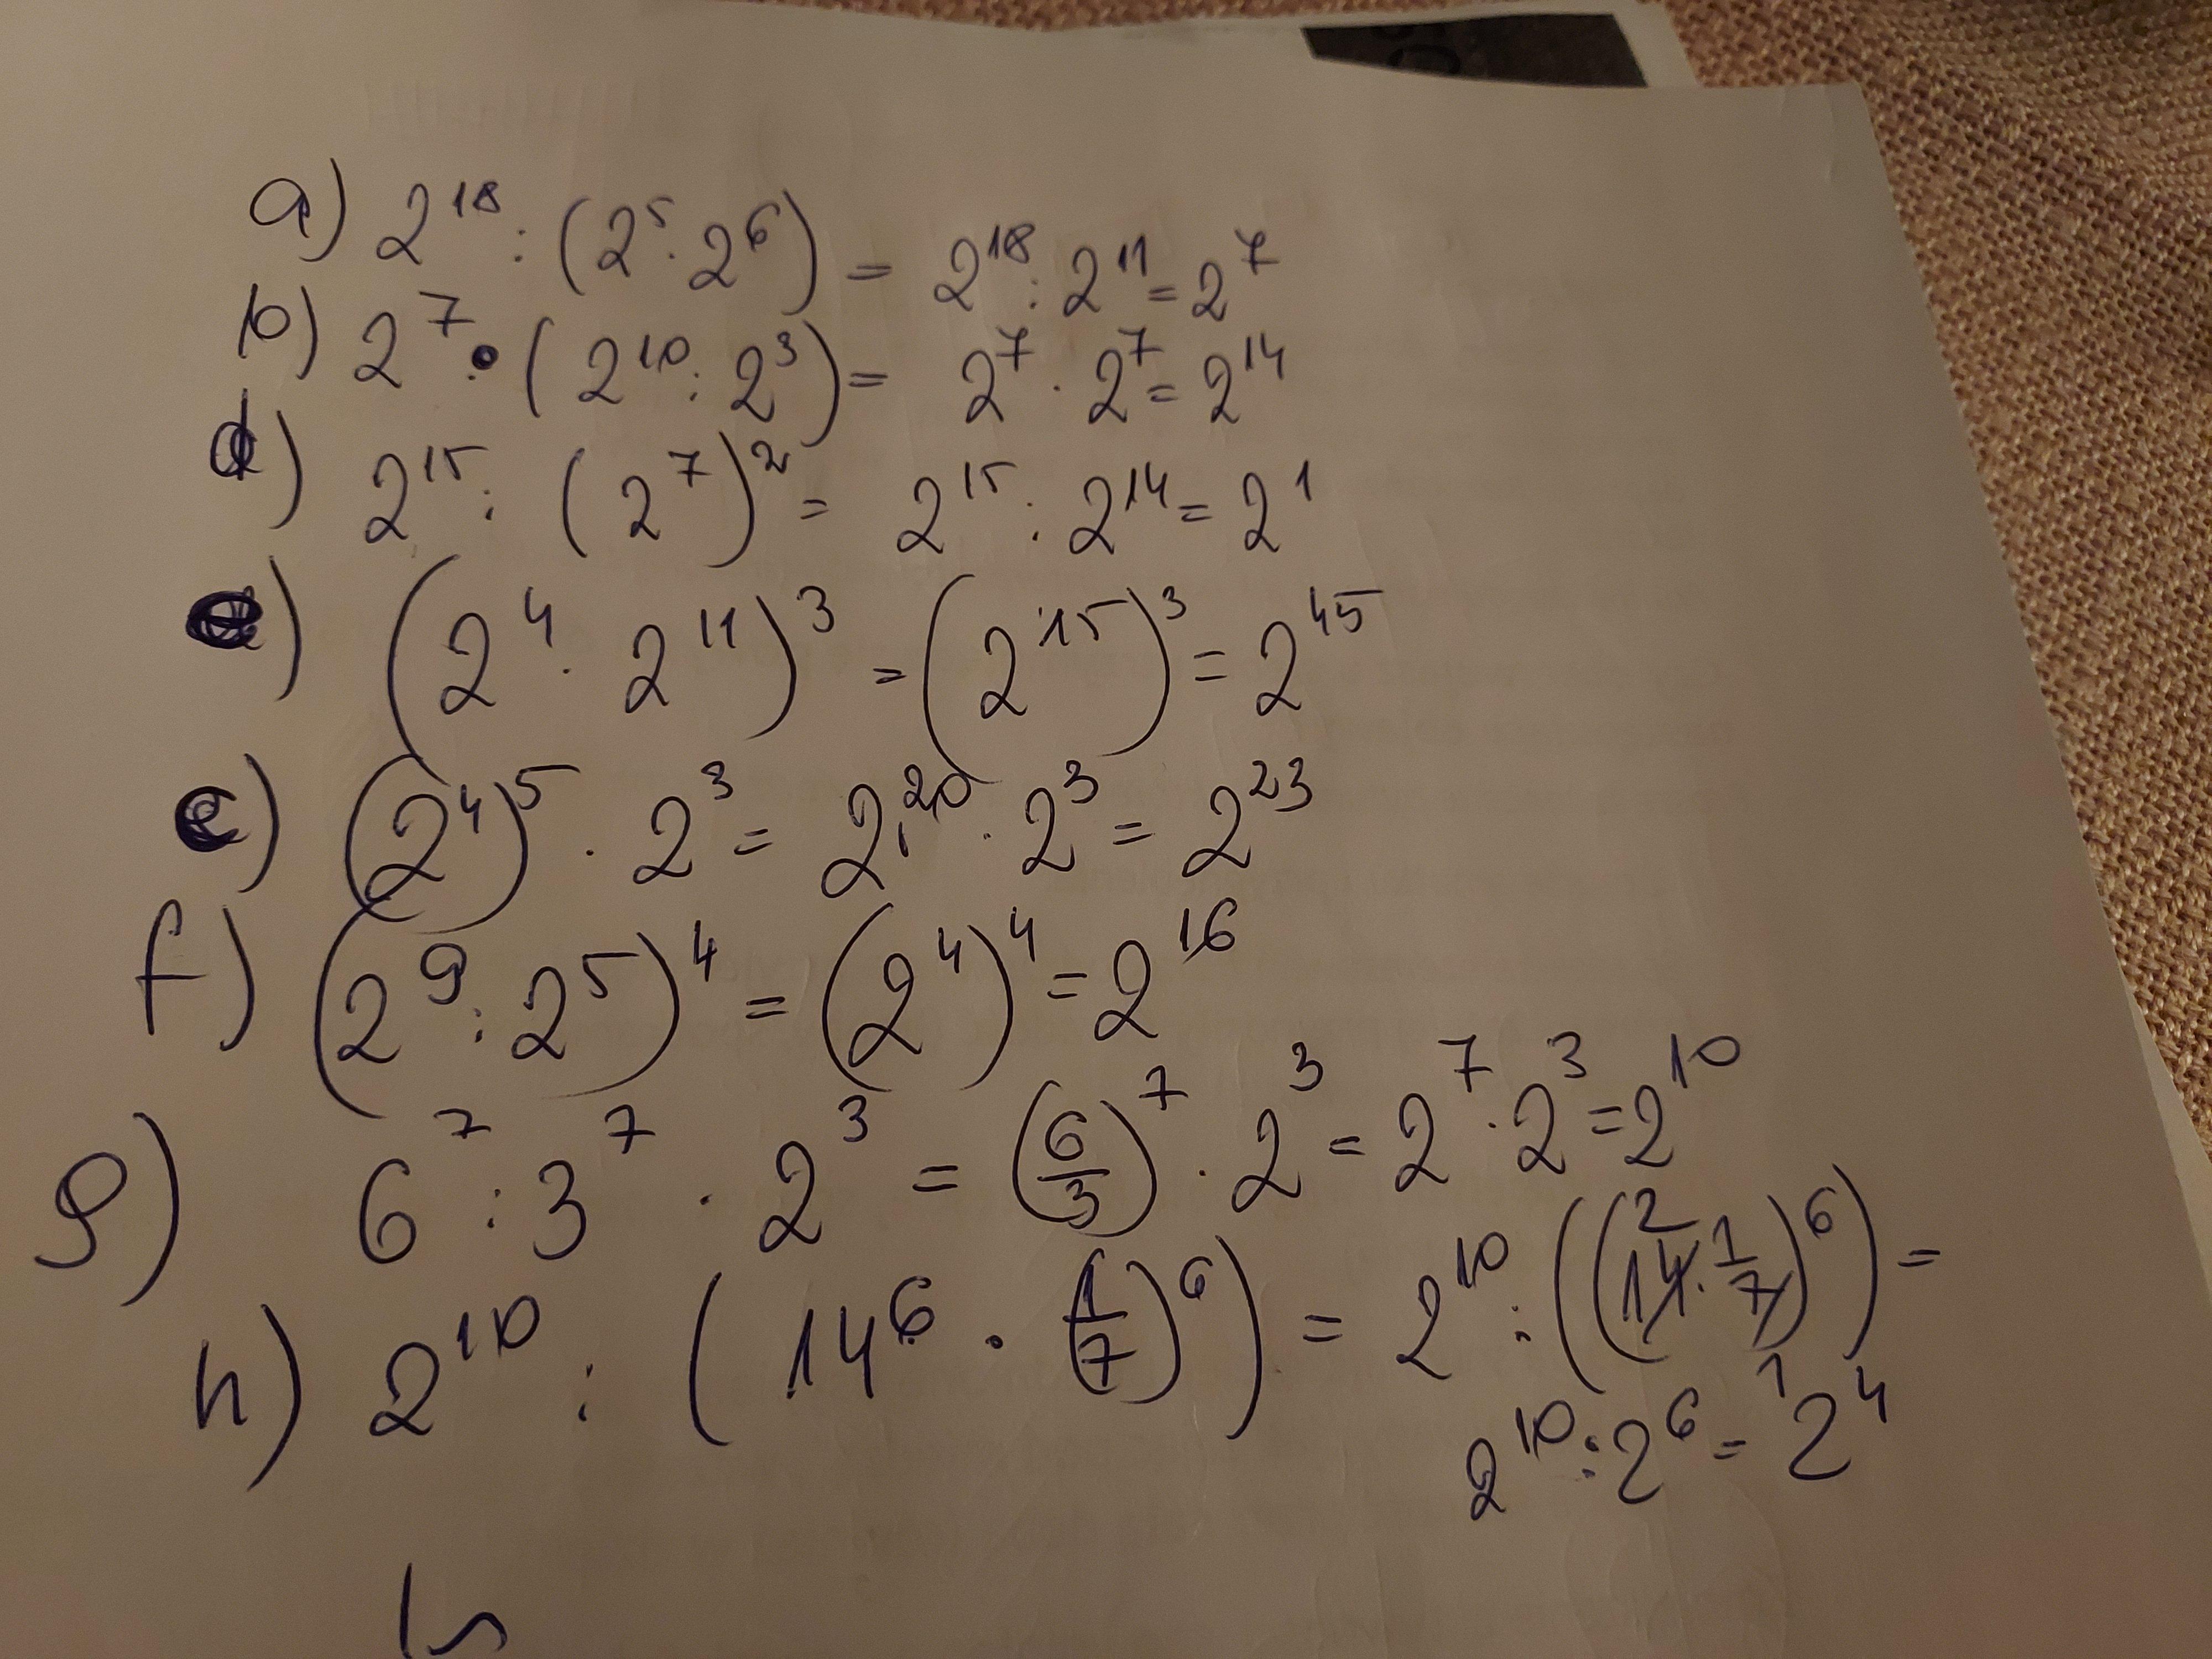 a) 2^18 : (2^5 · 2^6) = 2^18 : 2^11 = 2^7
b) 2^7 · (2^10 : 2^3) = 2^7 · 2^7 = 2^14
d) 2^15 : (2^7)^2 = 2^15 : 2^14 = 2^1
e) (2^4 · 2^11)^3 = (2^15)^3 = 2^45
c) (2^4)^5 · 2^3 = 2^20 · 2^3 = 2^23
f) (2^9 : 2^5)^4 = (2^4)^4 = 2^16
g) 6^7 : 3^7 · 2^3 = (6/3)^7 · 2^3 = 2^7 · 2^3 = 2^10
h) 2^10 : (14^6 · (1/7)^6) = 2^10 : ((14 · 1/7)^6) =
2 1
2^10 : 2^6 = 2^4